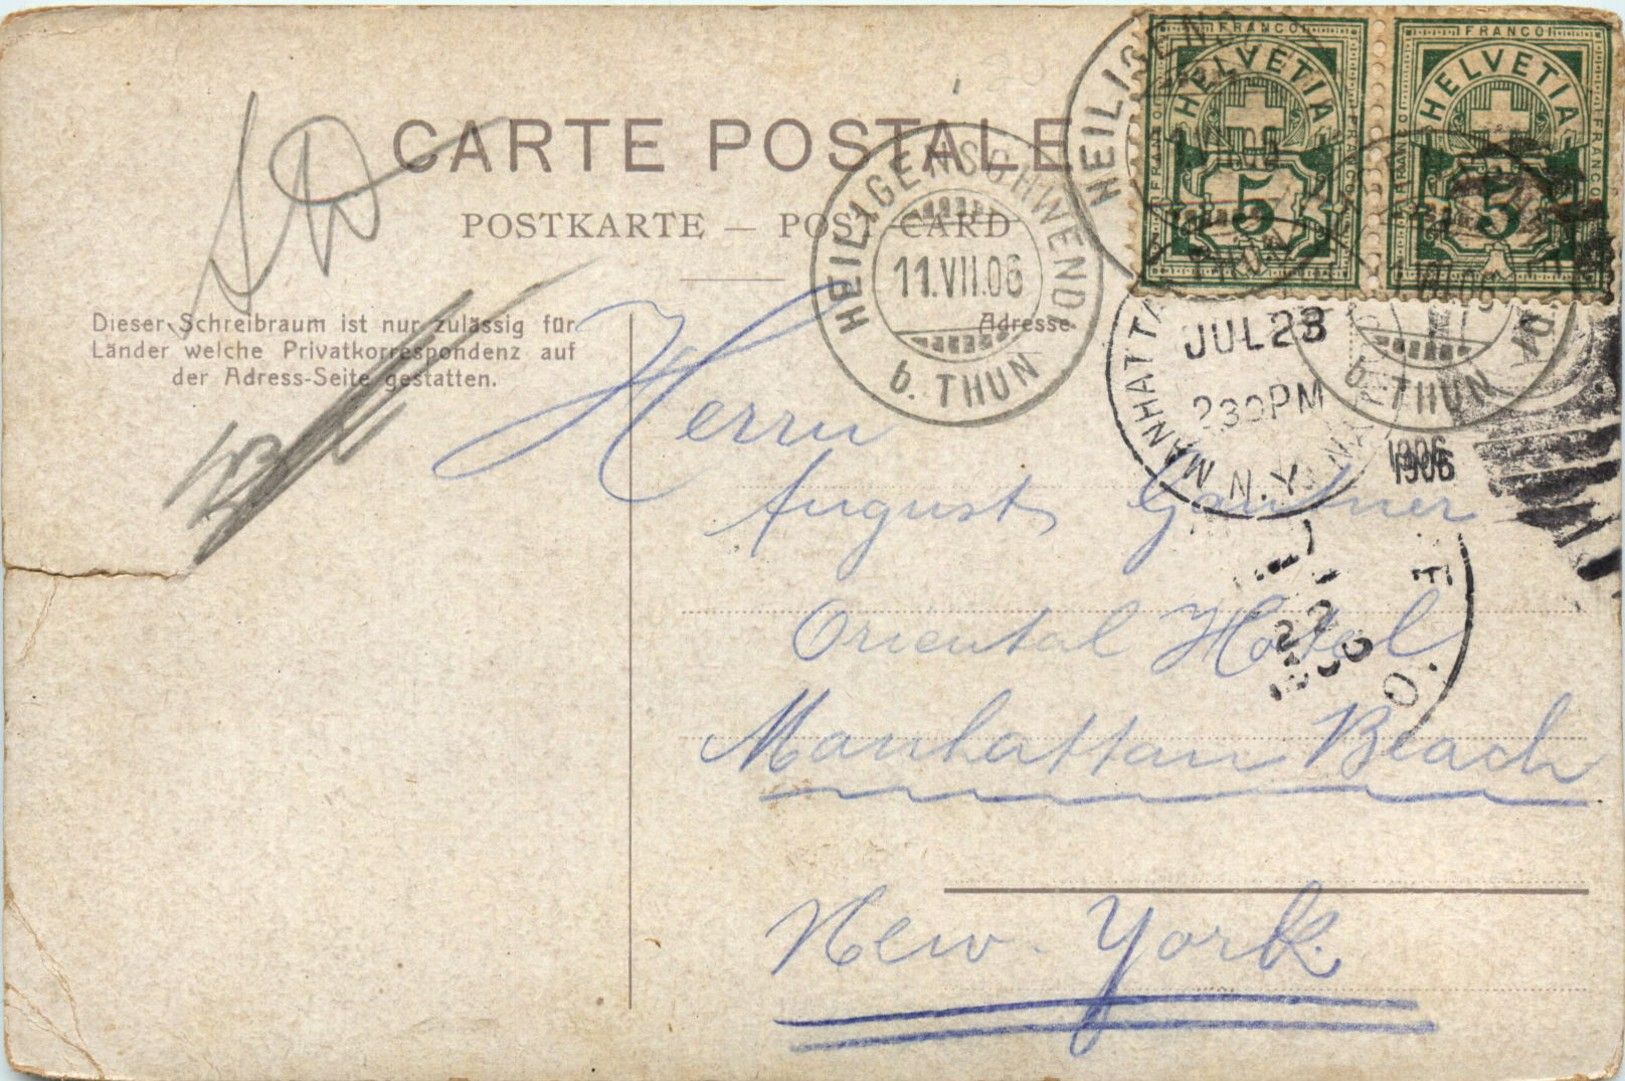 CARTE POSTALE
POSTKARTE — POST-CARD
Dieser Schreibraum ist nur zulässig für
Länder welche Privatkorrespondenz auf
der Adress-Seite gestatten.
Adresse
FRANCO
HELVETIA
5
FRANCO
HELVETIA
5
HEILIGENSCHWENDI
11.VII.06
b. THUN
HEILIGEN
THUN
VII.06
b. THUN
MANHATTAN
JUL 23
230PM
N.Y.
1906
Herrn
August Gantner
Oriental Hotel
Manhattan Beach
New-York.